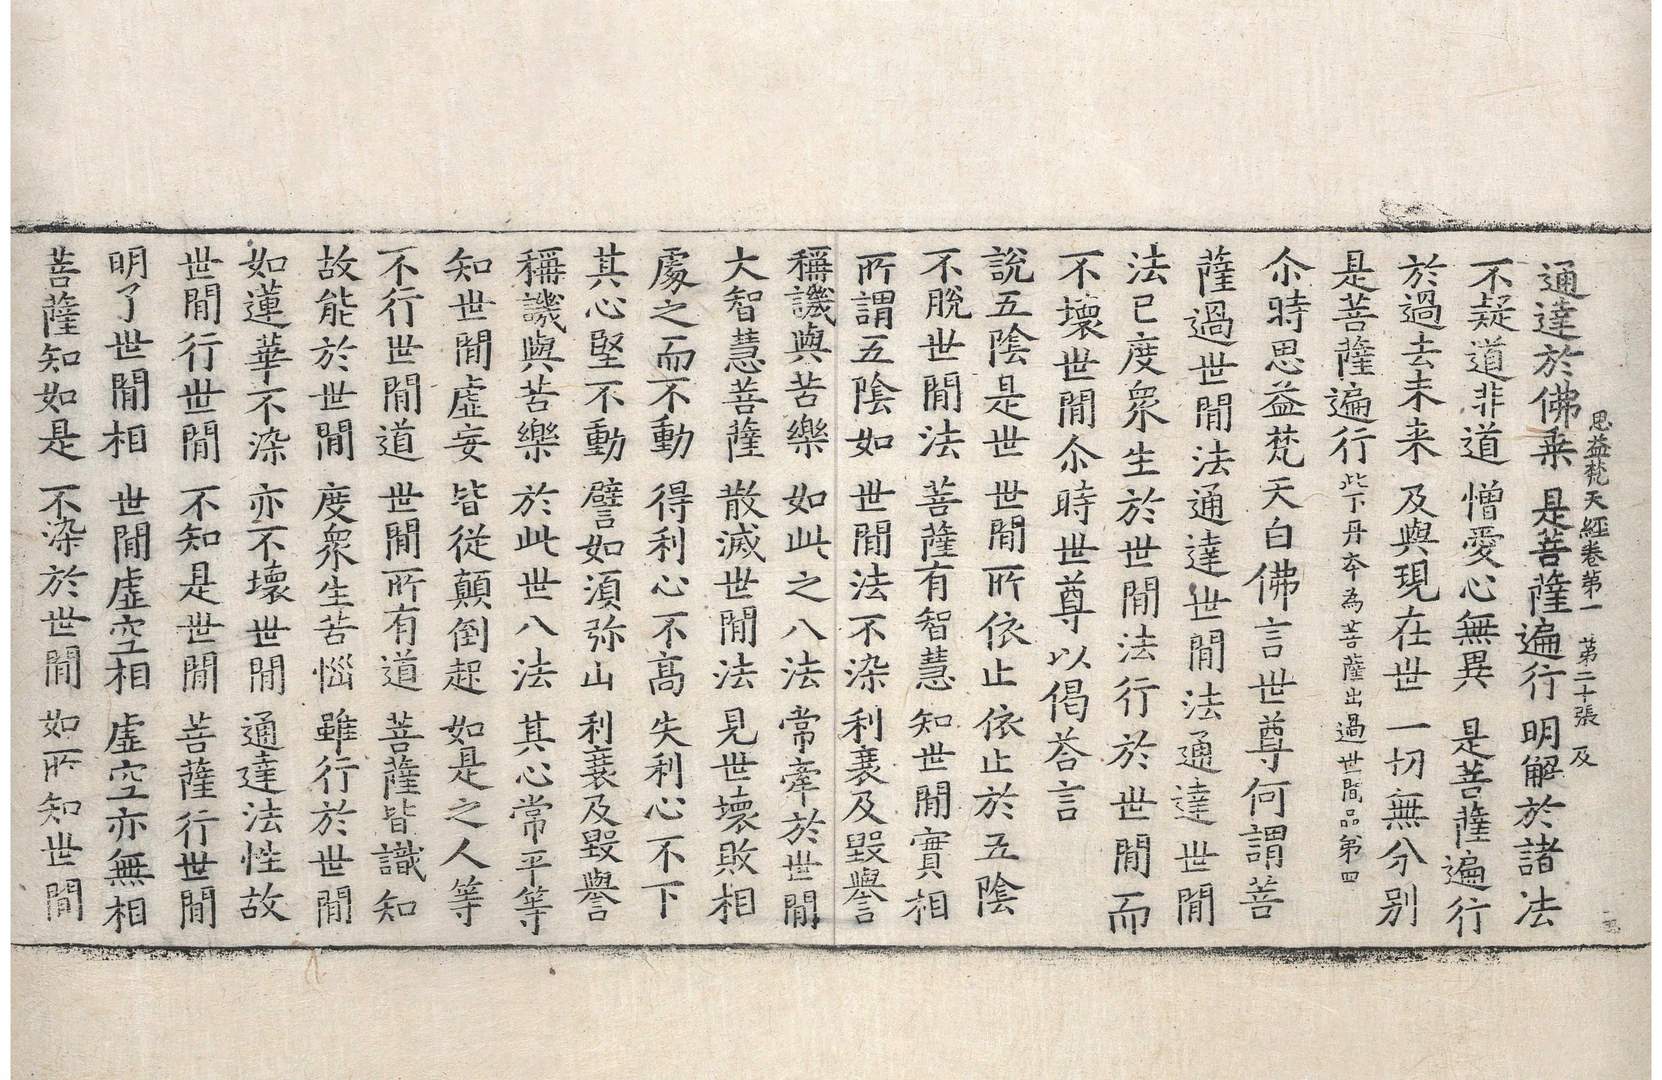 思益梵天經卷第一　第二十張　及
通達於佛乗　是菩薩遍行　明解於諸法
不疑道非道　憎愛心無異　是菩薩遍行
於過去未来　及與現在世　一切無分别
是菩薩遍行　此下丹夲為菩薩出過世閒品第四
尒時思益梵天白佛言世尊何謂菩
薩過世閒法通達世閒法通達世閒
法已度衆生於世閒法行於世閒而
不壞世閒尒時世尊以偈荅言
說五陰是世　世閒所依止　依止於五陰
不脫世閒法　菩薩有智慧　知世閒實相
所謂五陰如　世閒法不染　利衰及毀譽
稱譏與苦樂　如此之八法　常牽於世閒
大智慧菩薩　散滅世閒法　見世壞敗相
處之而不動　得利心不高　失利心不下
其心堅不動　譬如湏弥山　利衰及毀譽
稱譏與苦樂　於此世八法　其心常平等
知世閒虛妄　皆従顛倒起　如是之人等
不行世閒道　世閒所有道　菩薩皆識知
故能於世閒　度衆生苦惱　雖行於世閒
如蓮華不染　亦不壞世閒　通達法性故
世閒行世閒　不知是世閒　菩薩行世閒
明了世閒相　世閒虛空相　虛空亦無相
菩薩知如是　不染於世閒　如所知世閒